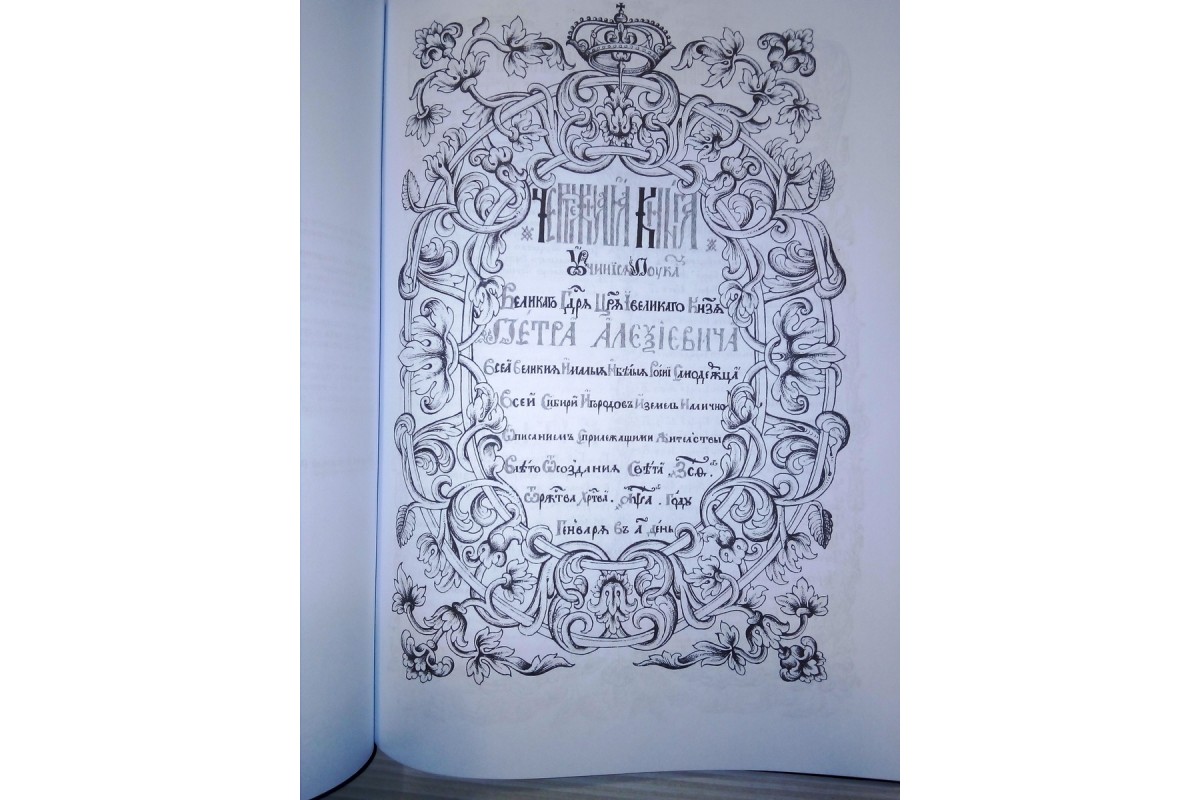 Чертежнаѧ Книга
Ꙋчинисѧ Поука꙯
Великаго Гдⷭ҇рѧ Цр҃ѧ Ївеликаго Кнѕѧ
ПЕТРА АЛЕѮІЕВИЧА
Всеѧ Великиѧ Ималыѧ Ибѣлыѧ Росиї Самодержца
Всей Сибири Игородовъ Иземель Налично
Ѡписаниемъ Сприлежащими Жителствы
Влѣто Ѿсоздания Свѣта ҂ЗСѲ.
Ѿржⷭ҇тва Хрⷭ҇това. ҂АѰА. Году
Генварѧ Въ А҃ день